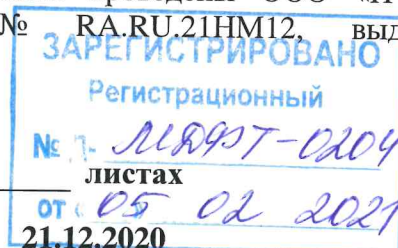 № RA.RU.21НМ12, выд
ЗАРЕГИСТРИРОВАНО
Регистрационный
№ Д- МДФТ-0204
листах
от 05 02 2021
21.12.2020